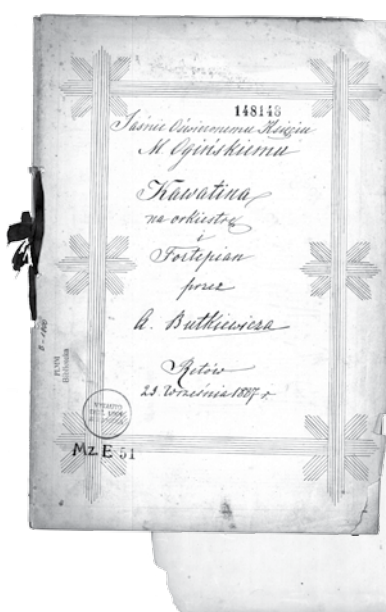 148148
Jaśnie Oświeconemu Księciu
M. Ogińskiemu
Kawatina
na orkiestrę
i
Fortepian
przez
A. Butkiewicza
Retów
23. Września 1887 r.
Mz E 51